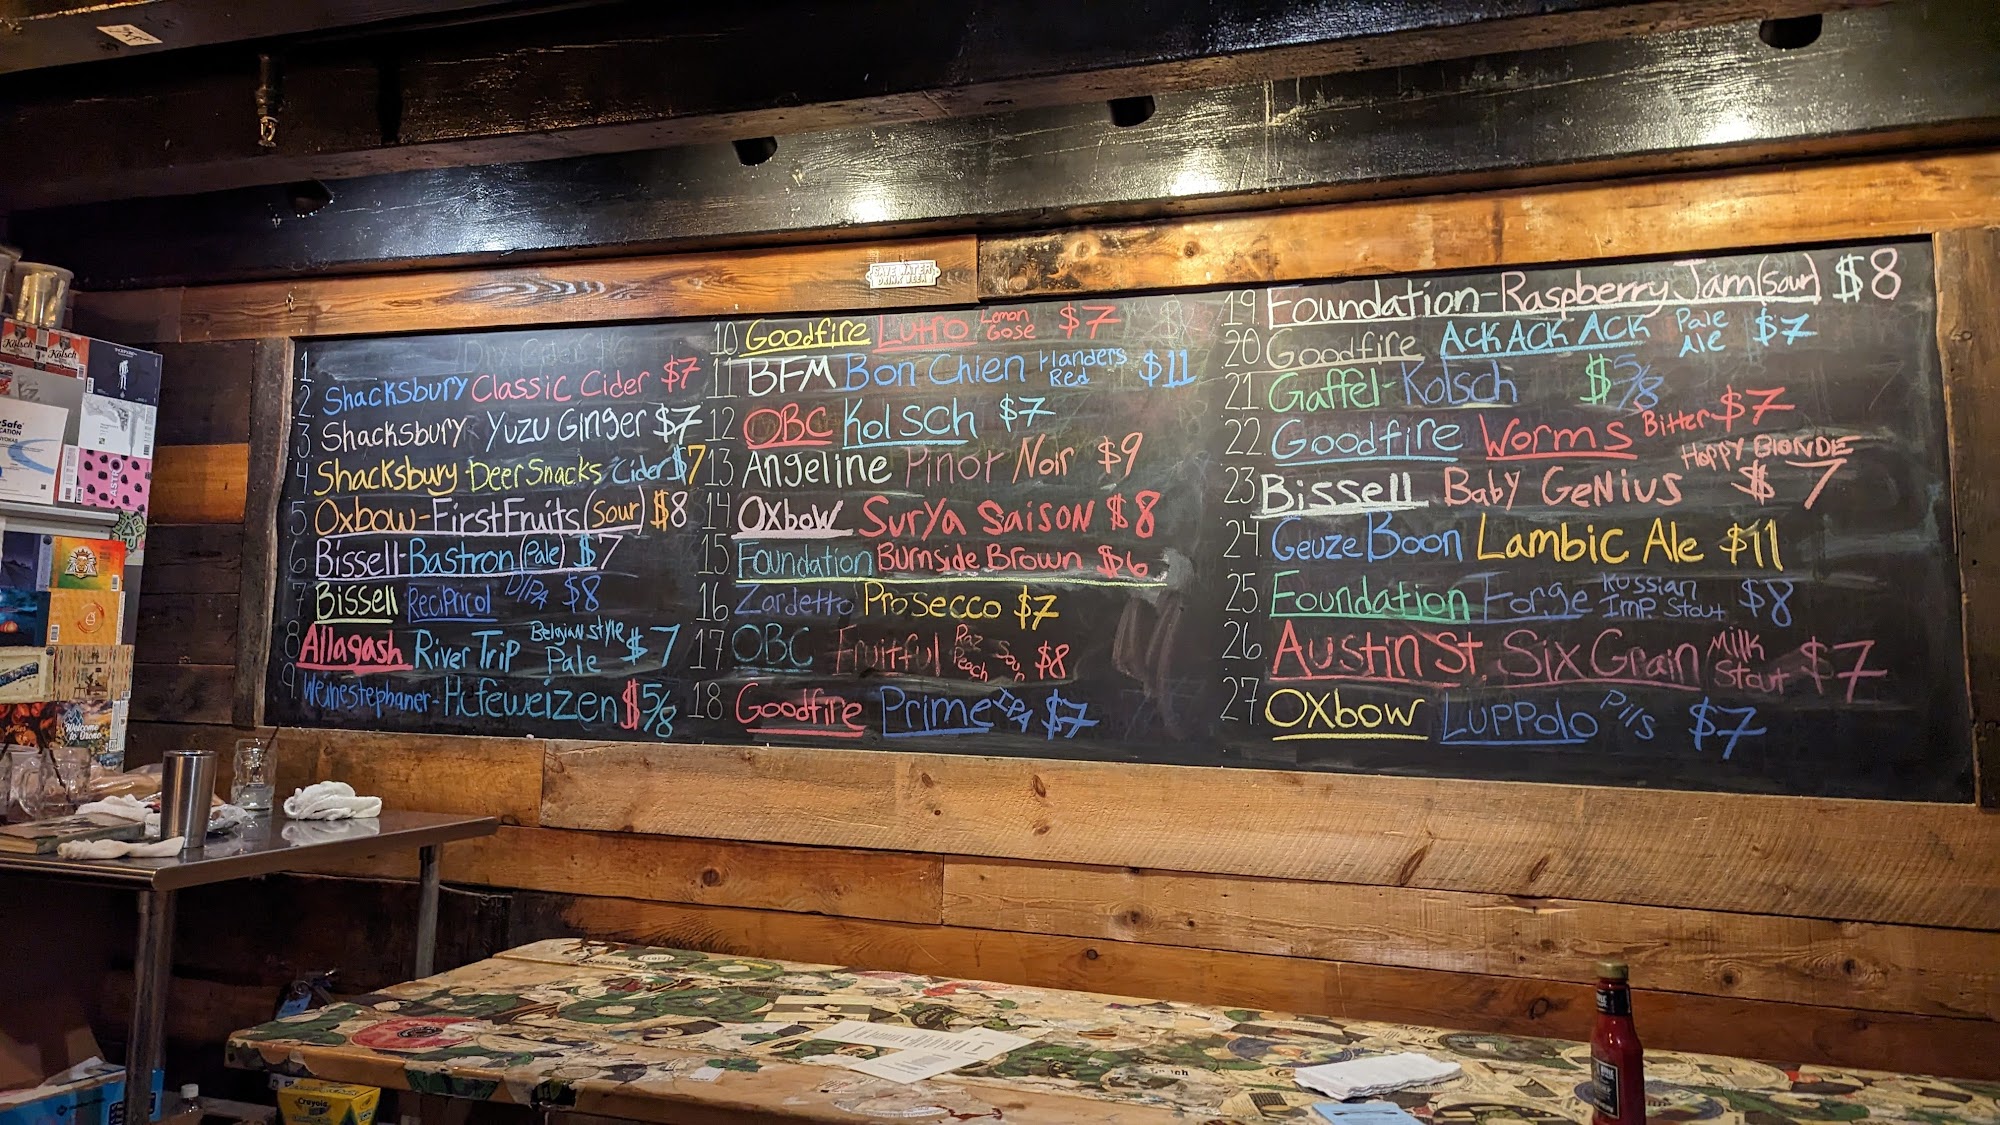 SAVE WATER
DRINK BEER
1.
2. Shacksbury Classic Cider $7
3. Shacksbury Yuzu Ginger $7
4. Shacksbury Deer Snacks Cider $7
5. Oxbow-First Fruits (Sour) $8
6. Bissell-Bastron (Pale) $7
7. Bissell Reciprical D/IPA $8
8. Allagash River Trip Belgian Style Pale $7
9. Weinestephaner-Hefeweizen $5/8
10 Goodfire Lutro Lemon Gose $7
11 BFM Bon Chien Flanders Red $11
12 OBC Kolsch $7
13 Angeline Pinot Noir $9
14. Oxbow Surya Saison $8
15. Foundation Burnside Brown $6
16 Zardetto Prosecco $7
17 OBC Fruitful Raz Peach Sour $8
18 Goodfire Prime IPA $7
19. Foundation-Raspberry Jam (Sour) $8
20. Goodfire ACK ACK ACK Pale Ale $7
21. Gaffel-Kolsch $5/8
22. Goodfire Worms Bitter $7
23 Bissell Baby Genius Hoppy Blonde $7
24. Geuze Boon Lambic Ale $11
25. Foundation Forge Russian Imp. Stout $8
26. Austin St. Six Grain Milk Stout $7
27. Oxbow Luppolo Pils $7
Kölsch
Kölsch
Welcome
to Orono
Crayola